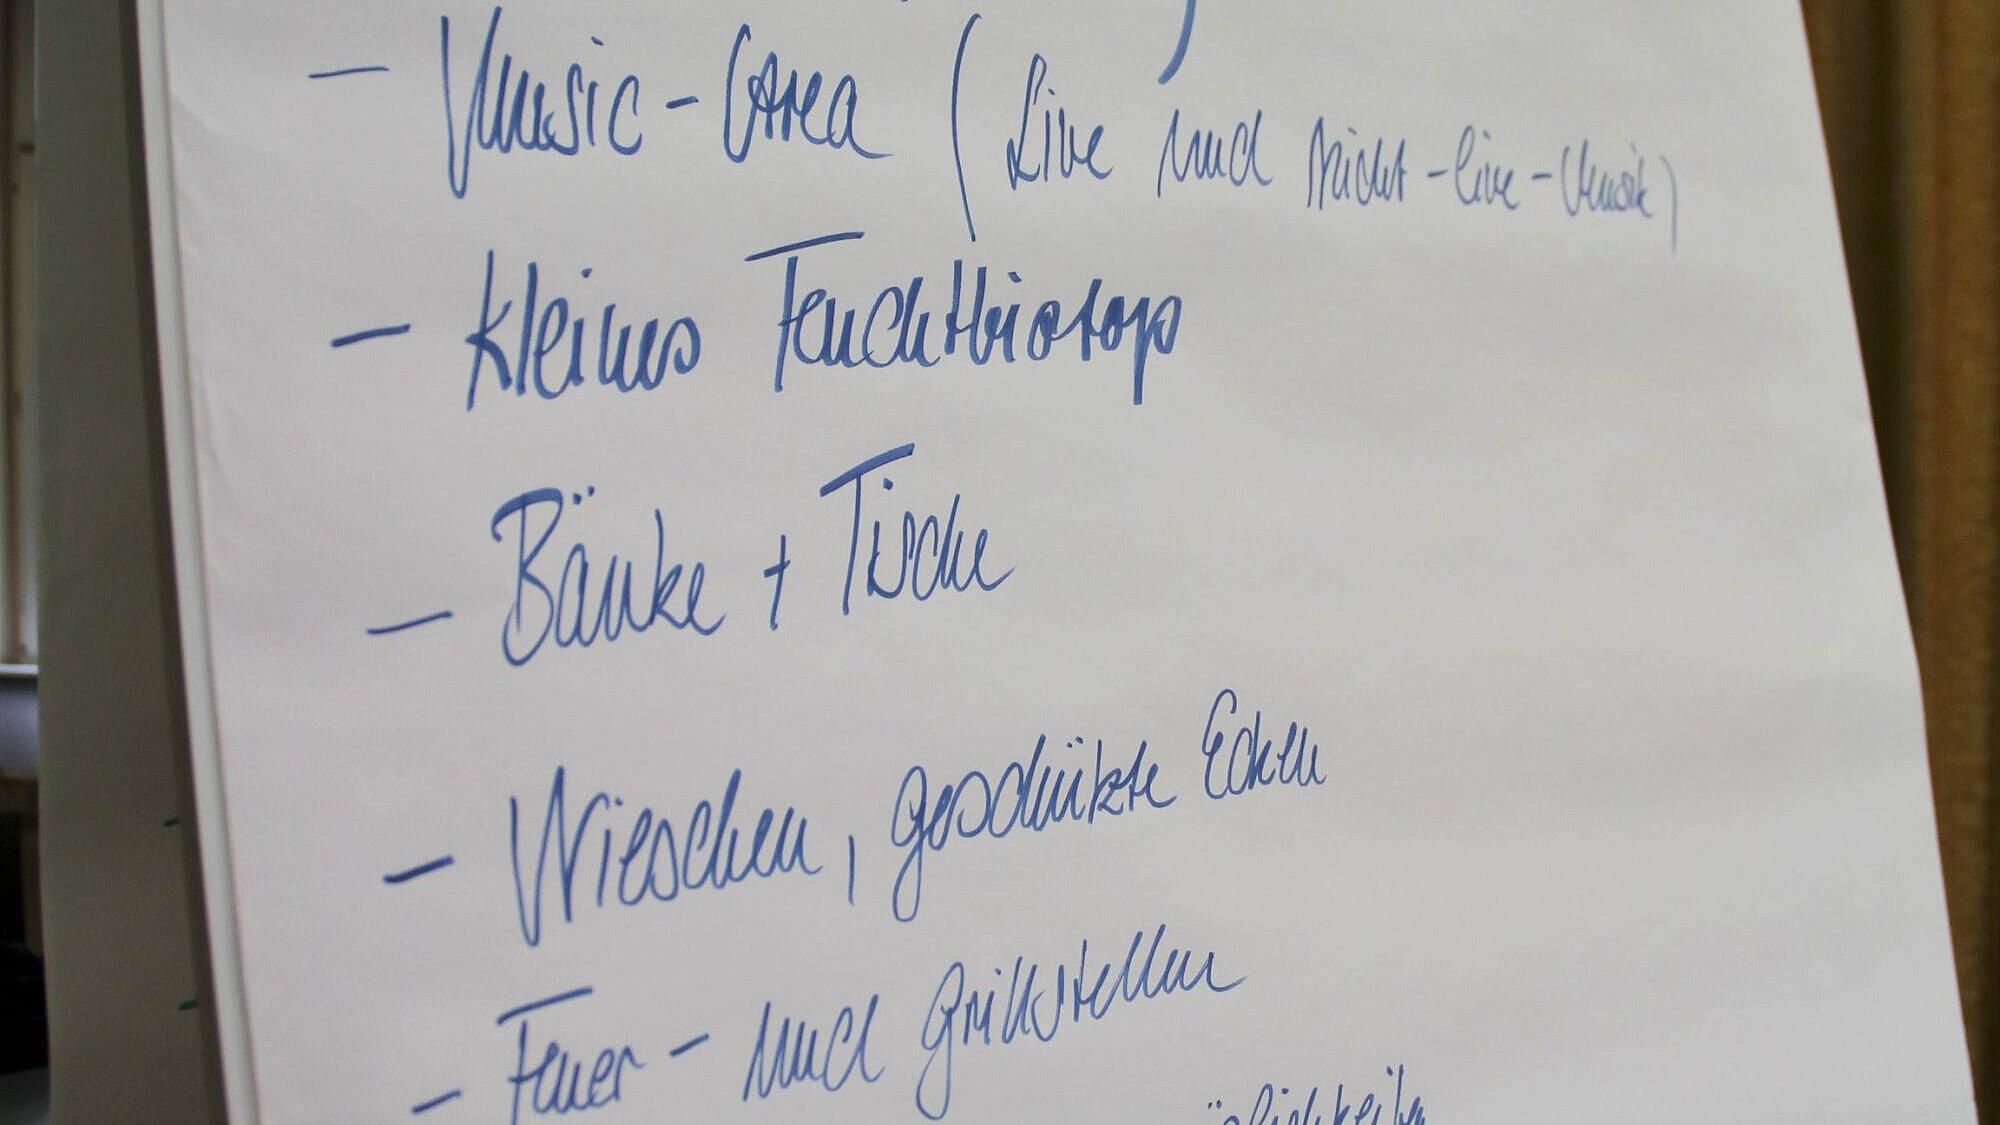 - Music-Area (Live und Nicht-live-Musik)
- kleines Feuchtbiotop
- Bänke + Tische
- Wieschen, geschützte Ecken
- Feuer- und Grillstellen